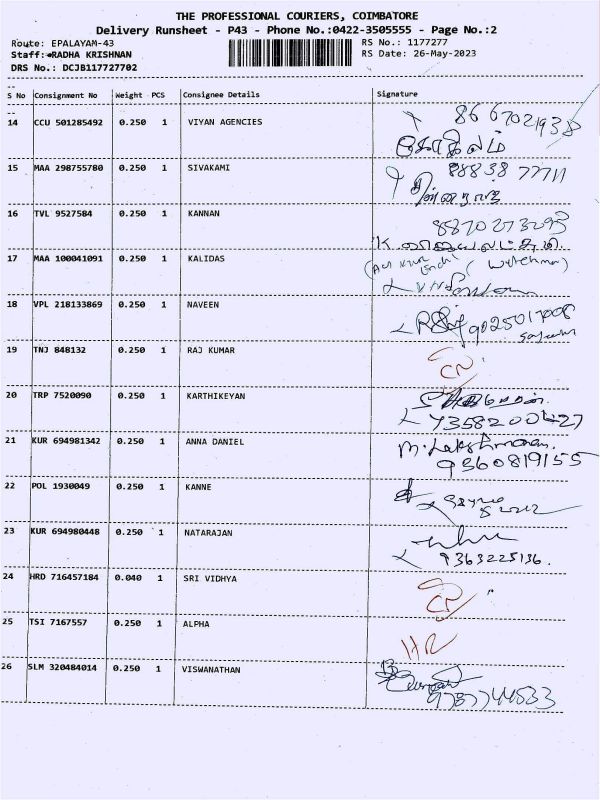 THE PROFESSIONAL COURIERS, COIMBATORE
Delivery Runsheet - P43 - Phone No.:0422-3505555 - Page No.:2
Route: EPALAYAM-43 RS No.: 1177277
Staff:*RADHA KRISHNAN RS Date: 26-May-2023
DRS No.: DCJB117727702
S No Consignment No Weight PCS Consignee Details Signature
14 CCU 501285492 0.250 1 VIYAN AGENCIES
15 MAA 298755780 0.250 1 SIVAKAMI 88838 77711
16 TVL 9527584 0.250 1 KANNAN 8870273293
17 MAA 100041091 0.250 1 KALIDAS (Watchman)
18 VPL 218133869 0.250 1 NAVEEN
19 TNJ 848132 0.250 1 RAJ KUMAR CR
20 TRP 7520090 0.250 1 KARTHIKEYAN
21 KUR 694981342 0.250 1 ANNA DANIEL M. Lakshmanan.
9360819155
22 POL 1930049 0.250 1 KANNE
23 KUR 694980448 0.250 1 NATARAJAN
9363225136.
24 HRD 716457184 0.040 1 SRI VIDHYA CR
25 TSI 7167557 0.250 1 ALPHA HR
26 SLM 320484014 0.250 1 VISWANATHAN